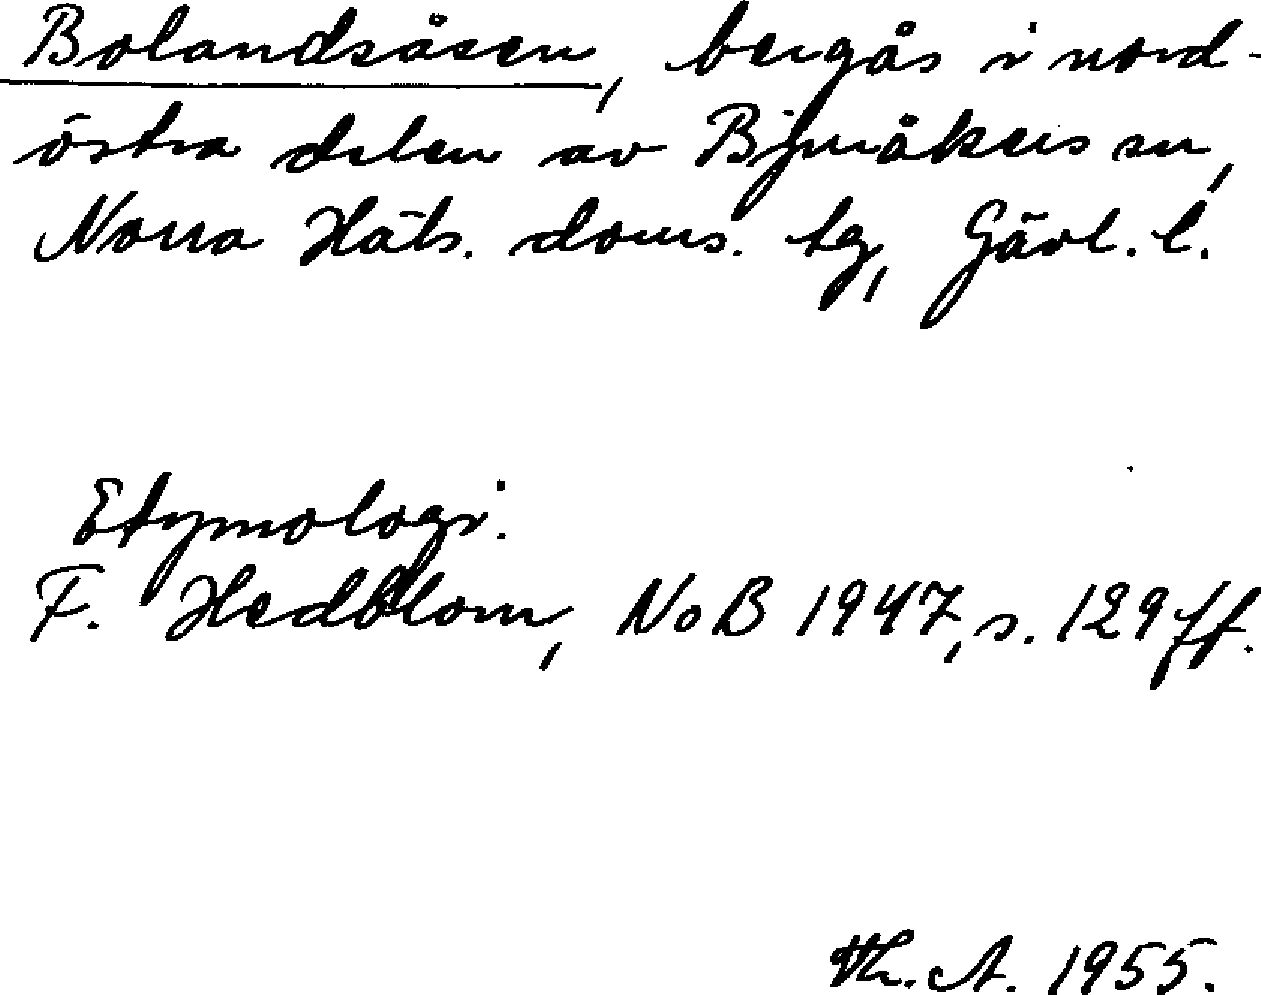 Bolandsåsen, bergås i nord-
östra delen av Bjuråkers sn,
Norra Häls. doms. tg, Gävl. l.
Etymologi.
F. Hedblom, NoB 1947, s. 129 ff.
Th. A. 1955.